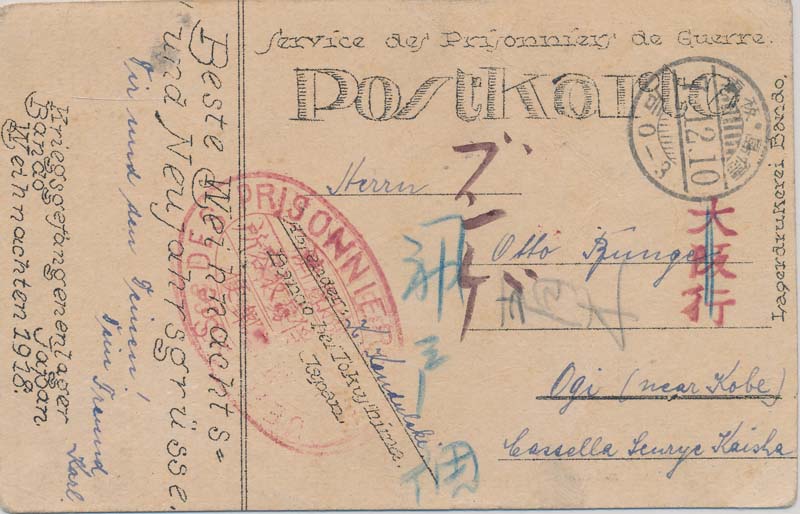 Service des Prisonniers de Guerre.
Postkarte
Herrn
Otto Runge
Ogi (near Kobe)
Cassella Senryo Kaisha
ブンゲ
大阪行
12.10
0-3
Lagerdruckerei Bando.
Absender:
Bando bei Tokushima.
Japan
Sce DES PRISONNIERS
Beste Weihnachts-
und Neujahrsgrüsse.
Dir und den Deinen!
Dein Freund
Karl.
Kriegsgefangenenlager
Bando Japan.
Weihnachten 1918.